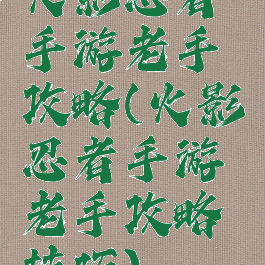 火影忍者
手游老手
攻略(火影
忍者手游
老手攻略
技巧)